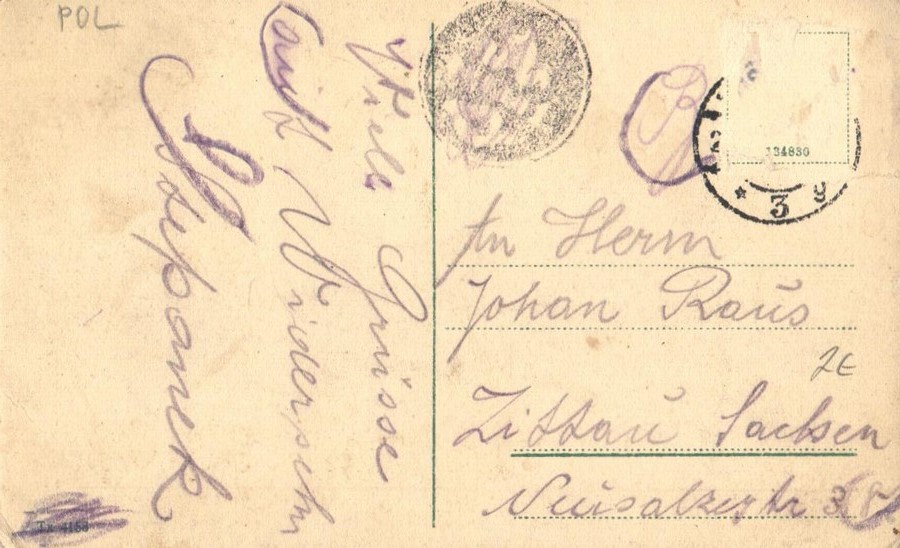 POL
Viele Grüsse
auf Widersehn
Stepanek
134830
* 3 9
An Herrn
Johan Raus
2€
Zittau Sachsen
Neusalzerstr 3
Tx 4158